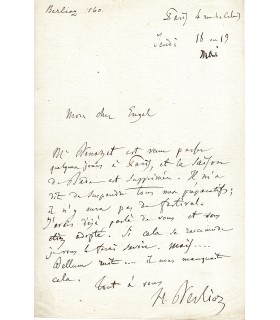 Berlioz 1860.
Paris 4 rue de Calais
Jeudi 18 ou 19
Mai
Mon cher Engel
Mr Benazet est venu passer
quelques jours à Paris, et la saison
de Bade est supprimée. Il m'a
dit de suspendre tous mes préparatifs;
il n'y aura pas de festival.
J'avais déjà parlé de vous et vous
étiez adopté. Si cela se raccommode
je vous le ferai savoir. mais....
Bellum ruit... il nous manquait
cela. Tout à vous
H Berlioz